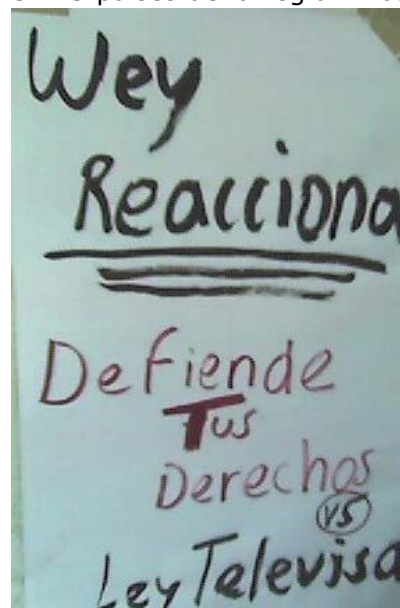 Wey
Reacciona
Defiende
Tus
Derechos
VS
Ley Televisa